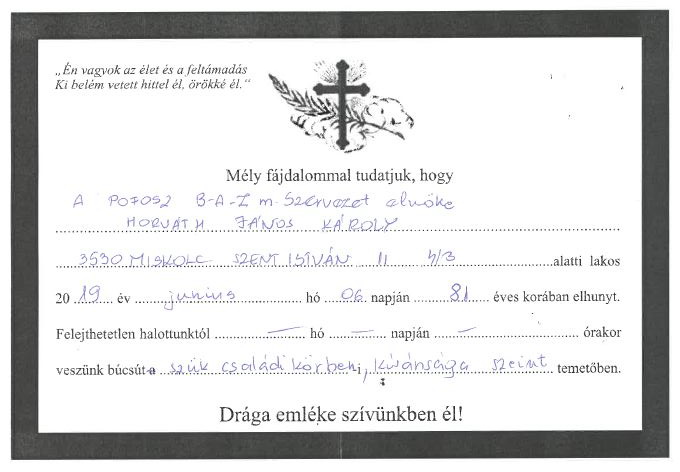 „Én vagyok az élet és a feltámadás
Ki belém vetett hittel él, örökké él."
Mély fájdalommal tudatjuk, hogy
A POFOSZ B-A-Z m. Szervezet elnöke
HORVÁTH JÁNOS KÁROLY
3530 MISKOLC SZENT ISTVÁN 11 4/3 alatti lakos
20 19 év junius hó 06 napján 81 éves korában elhunyt.
Felejthetetlen halottunktól — hó — napján — órakor
veszünk búcsút a szük családi körben i, kívánsága szeint temetőben.
Drága emléke szívünkben él!